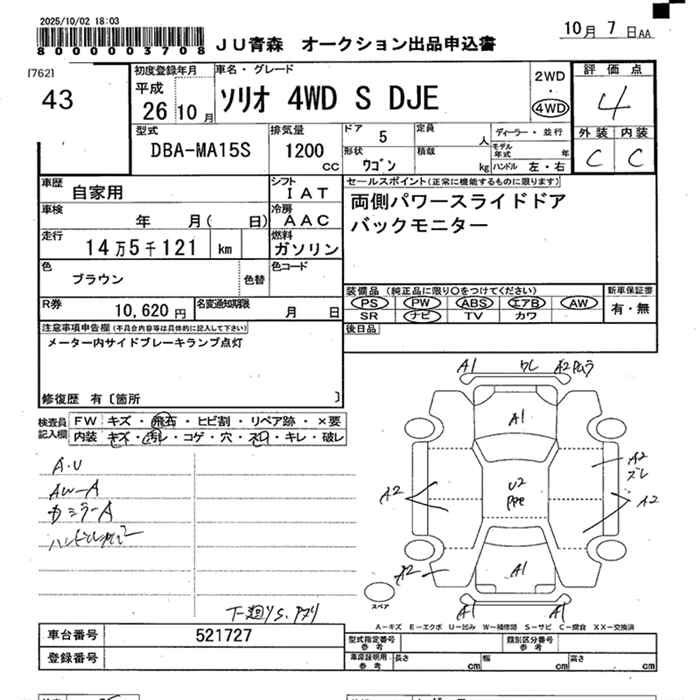 2025/10/02 18:03
8000000003708
JU青森 オークション出品申込書
10月 7日AA
[762]
43
初度登録年月
平成
26 10月
車名・グレード
ソリオ 4WD S DJE
2WD
・
4WD
評価点
4
外装 内装
C C
型式
DBA-MA15S
排気量
1200
CC
ドア 5
形状
ワゴン
定員
人
積載
kg
ディーラー・並行
モデル年式 年
ハンドル 左・右
車歴
自家用
シフト
IAT
車検
年 月( 日)
冷房
AAC
走行
14万5千121 km
燃料
ガソリン
色
ブラウン
色替
色コード
R券
10,620円
名変通知期限
月 日
セールスポイント(正常に機能するものに限ります)
両側パワースライドドア
バックモニター
装備品(純正品に限り○をつけてください)
PS PW ABS エアB AW
SR ナビ TV カワ
新車保証書
有・無
後日品
注意事項申告欄(不具合内容等は具体的に記入して下さい)
メーター内サイドブレーキランプ点灯
修復歴 有〔箇所 〕
検査員
記入欄
FW キズ・飛石・ヒビ割・リペア跡・×要
内装 キズ・汚レ・コゲ・穴・スレ・キレ・破レ
A.U
AW-A
カミラーA
A1 ワレ A2
A1
U2
A2
A2
ズレ
A2
A2
A1
A1 A1
スペア
A-キズ E-エクボ U-凹み W-補修跡 S-サビ C-腐食 XX-交換済
車台番号 521727
登録番号
型式指定番号
参考
類別区分番号
参考
車庫証明用
参考
長さ cm
幅 cm
高さ cm